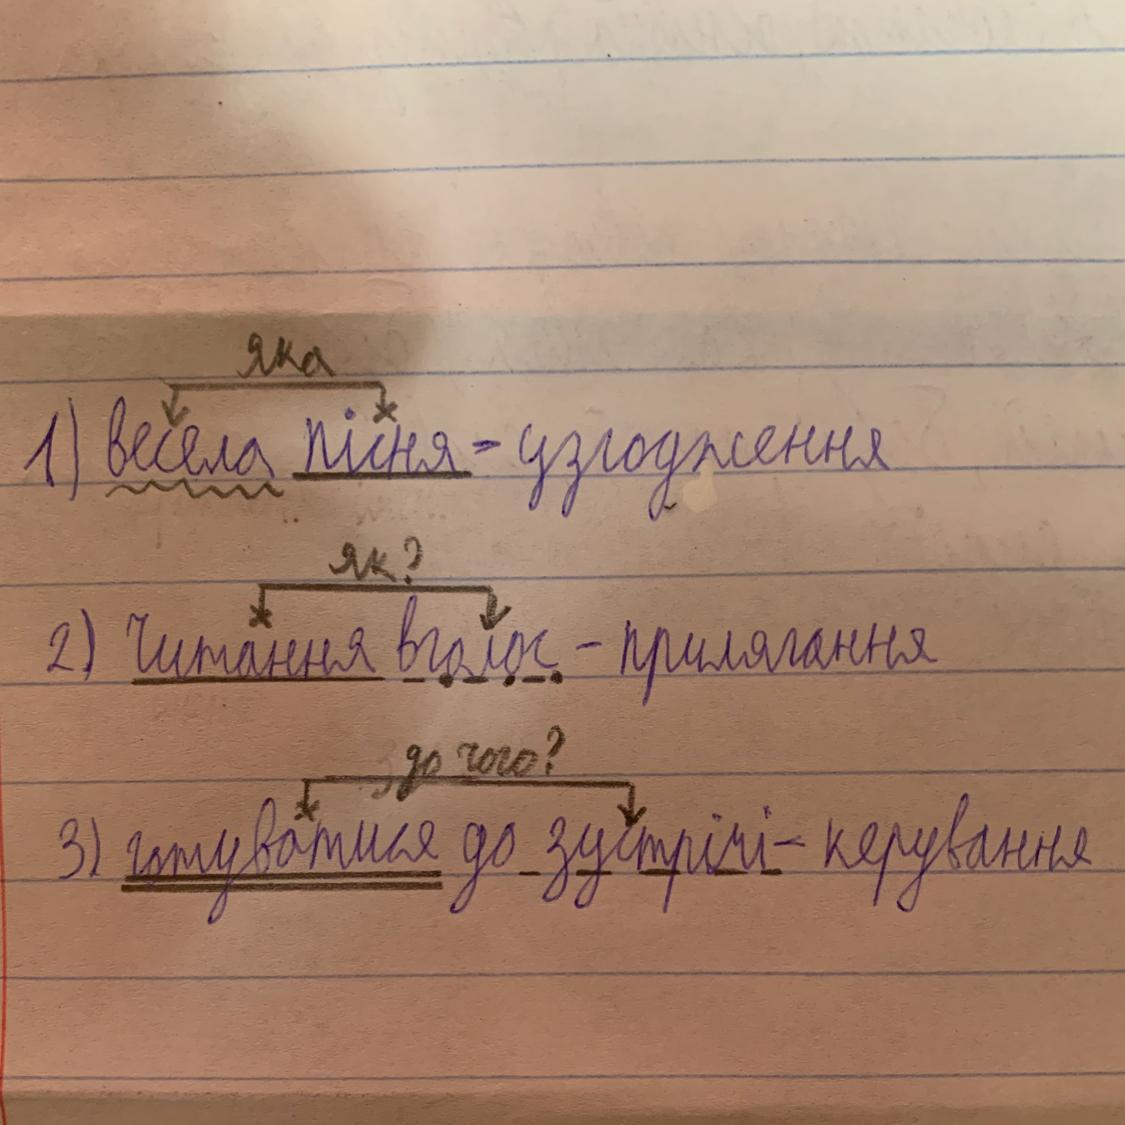 яка
1) весела пісня - узгодження
як?
2) Читання вголос - прилягання
до чого?
3) готуватися до зустрічі - керування